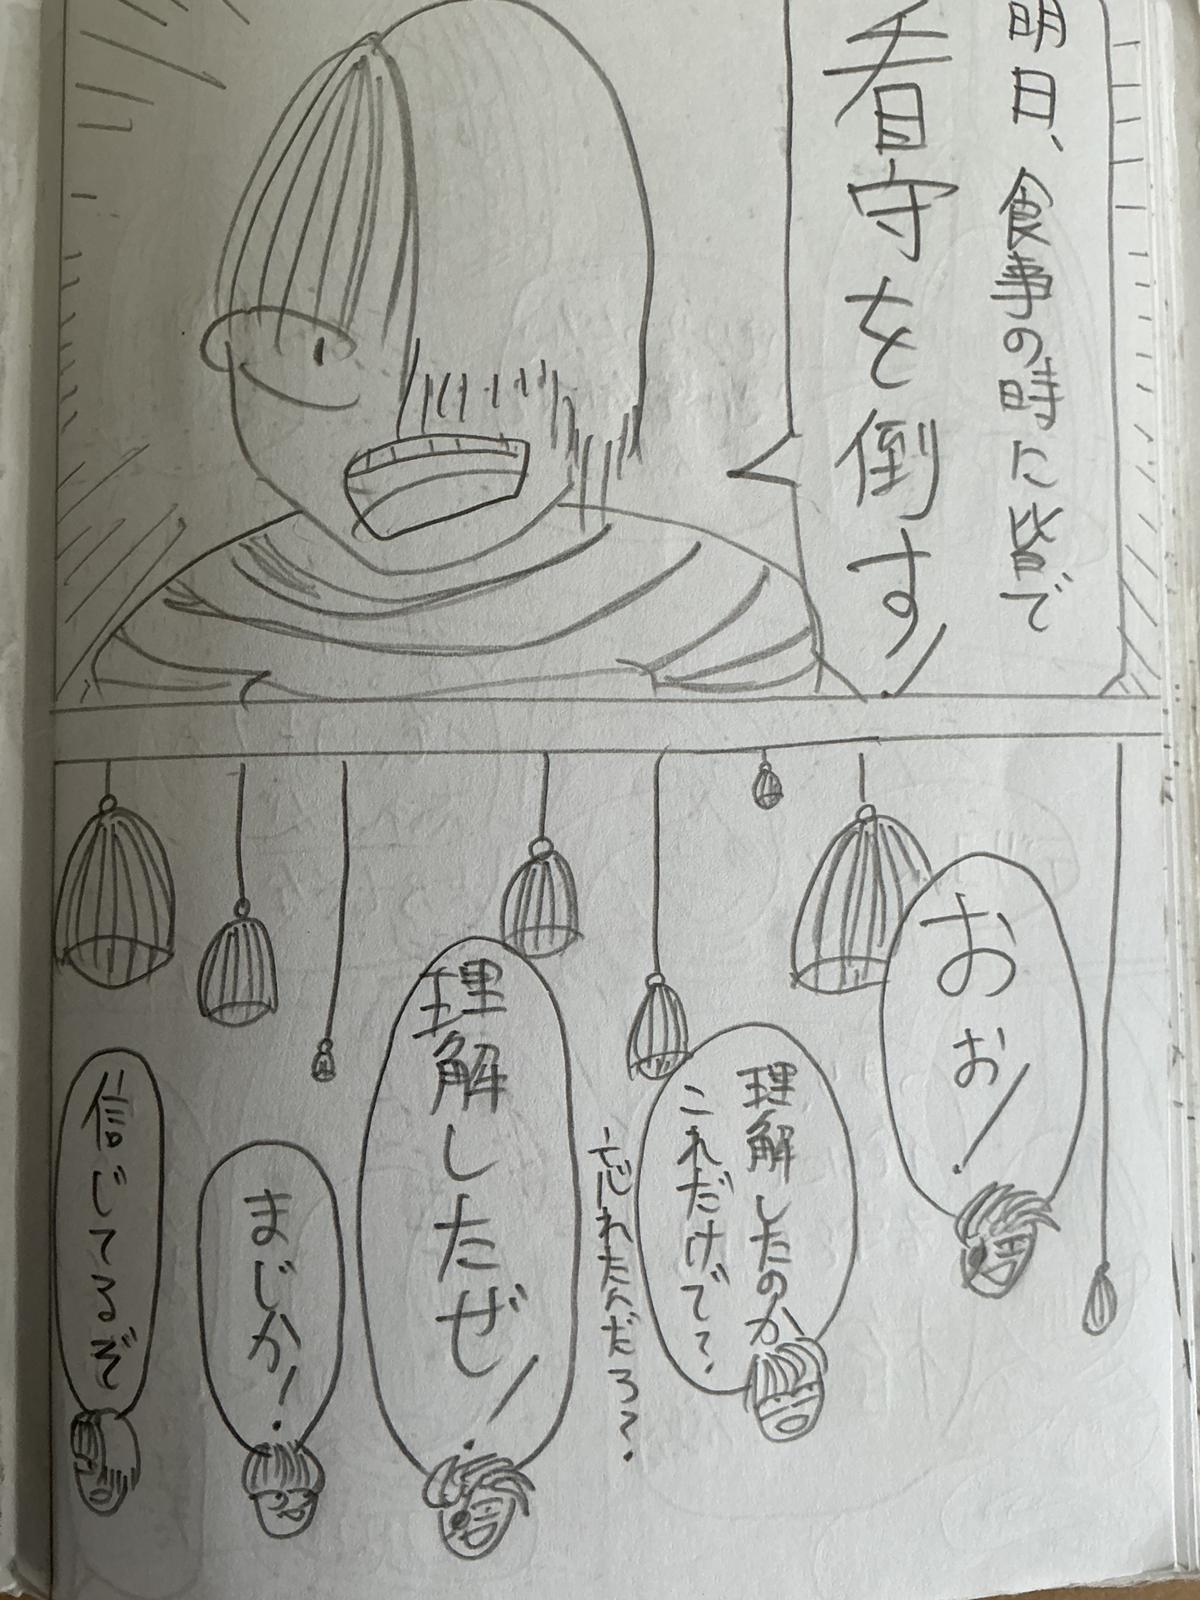 明日、食事の時に皆で
看守を倒す!
おお!
理解したのか
これだけで?、
忘れたんだろ?.
理解したぜ!
まじか!
信じてるぞ